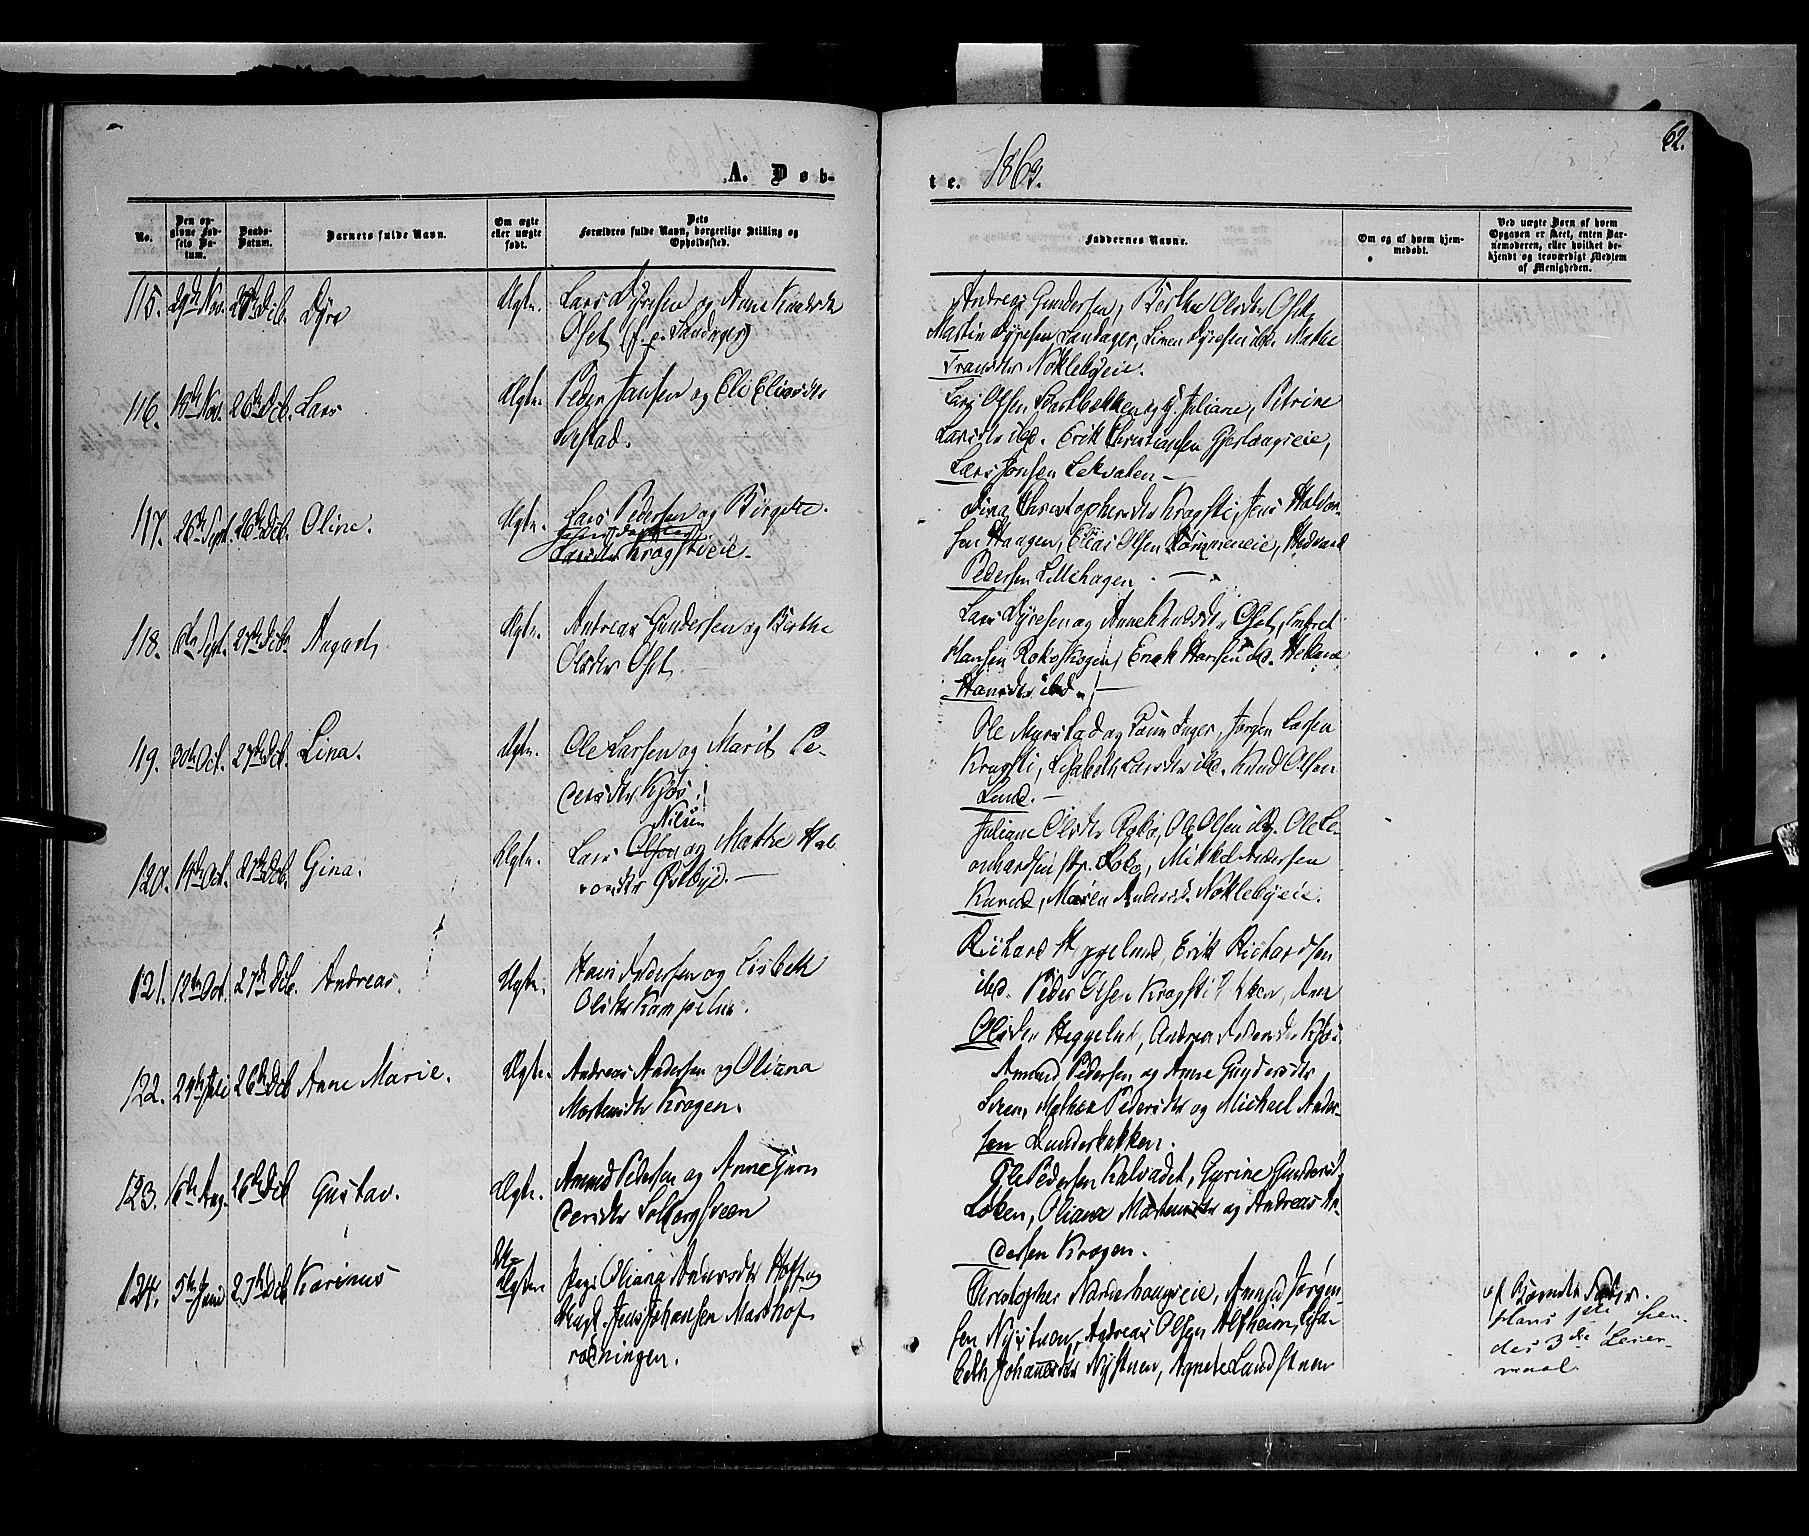 62.
A. Døb-
te. 1863.
No.
Den op-
givne Fød-
sels Da-
tum.
Daabs-
Datum.
Barnets fulde Navn.
Om ægte
eller uægte
født.
Dets
Forældres fulde Navn, borgerlige Stilling og
Opholdssted.
Faddernes Navne.
Om og af hvem hjem-
medøbt.
Ved uægte Børn af hvem
Opgaven er skeet, enten Bar-
nemoderen, eller hvilket be-
kjendt og troværdigt Medlem
af Menigheden.
115. 29de Nov. 26de Dcb. Dyre Ægte. Lars Dyresen og Anne Knudsdtr
Oset (f. p. Sandager)
Andreas Gundersen, Berthe Olsdtr Oset,
Martin Dyresen Sandager, Simen Dyresen ibd. Mathe
Fransdtr Nøklebyeie.
116. 18de Nov. 26de Dcb. Lars Ægte. Peder Jansen og Eli Eliasdtr
Lars Olsen og H. Juliane, Petrine
Larsdtr ibd. Erik Christiansen
Lars Jonsen
117. 26de Sept. 26de Dcb. Oline. Ægte. Lars Pedersen og Birgitte
Larsdtr Kragstieie.
Dina Christophersdtr Kragsti, Jens Haldor-
sen Haagen, Elias Olsen Hedvard
Pedersen Lillehagen. —
118. Sept. 27de Dcb. Aagodt, Ægte. Andreas Gundersen og Berthe
Olsdtr Oset.
Lars Dyresen og Anne Knudsdtr Oset, Embret
Hansen Rokoskogen, Erik Hansen ibd. Helene
Hansdtr ibd. —
119. 30te Oct. 27de Dcb. Lina. Ægte. Ole Larsen og Marit Pe-
dersdtr Kjøs.
Ole Myrstad og Inger, Jørgen Larsen
Kragsti, Lisabeth Larsdtr ibd. Knud Olsen
Lund. —
120. 14de Oct. 27de Dcb. Gina. Ægte. Lars Olsen Nilsen og Mathe Hal-
vorsdtr Østbye. —
Juliane Olsdtr Roko, Ole Olsen ibd. Ole Le-
onhardsen Roko, Mikkel Andersen
Maren Andersdtr Nøklebyeie.
121. 12te Oct. 27de Dcb. Andreas. Ægte. Hans Andersen og Lisbeth
Olsdtr
Richard Heggelund, Erik Richardsen
ibd. Peder Olsen Kragsti Anne
Olsdtr Heggelund, Andrea Kjøs
122. 29de Juli 26de Dcb Anne Marie. Ægte. Andreas Andersen og Oliana
Mortensdtr Kragen.
Amund Pedersen og Anne Gundersdtr
Sveen, Mathea Pedersdtr og Michael Ander-
sen Sunderbakken.
123. 16de Aug. 26de Dcb Gustav. Ægte. Amund Pedersen og Anne Gun-
dersdtr Solborgsveen
Ole Pedersen Kalvadet, Gurine Gundersd.
Løken, Oliana Mortensdtr og Andreas An-
dersen Kragen.
124. 5te Juni 27de Dcb Karinus Uægte. Pige Oliana Andersdtr Hoff og
Ungk. Jens Johansen Mads Hof-
rødningen.
Christopher Amund Jørgen-
sen Nystuen, Andreas Olsen Alfheim, Lisa-
beth Johannesdtr Nystuen, Agnete Landstuen
af Barnets Fader.
Hans 1ste, hen-
des 3die Leier-
maal.